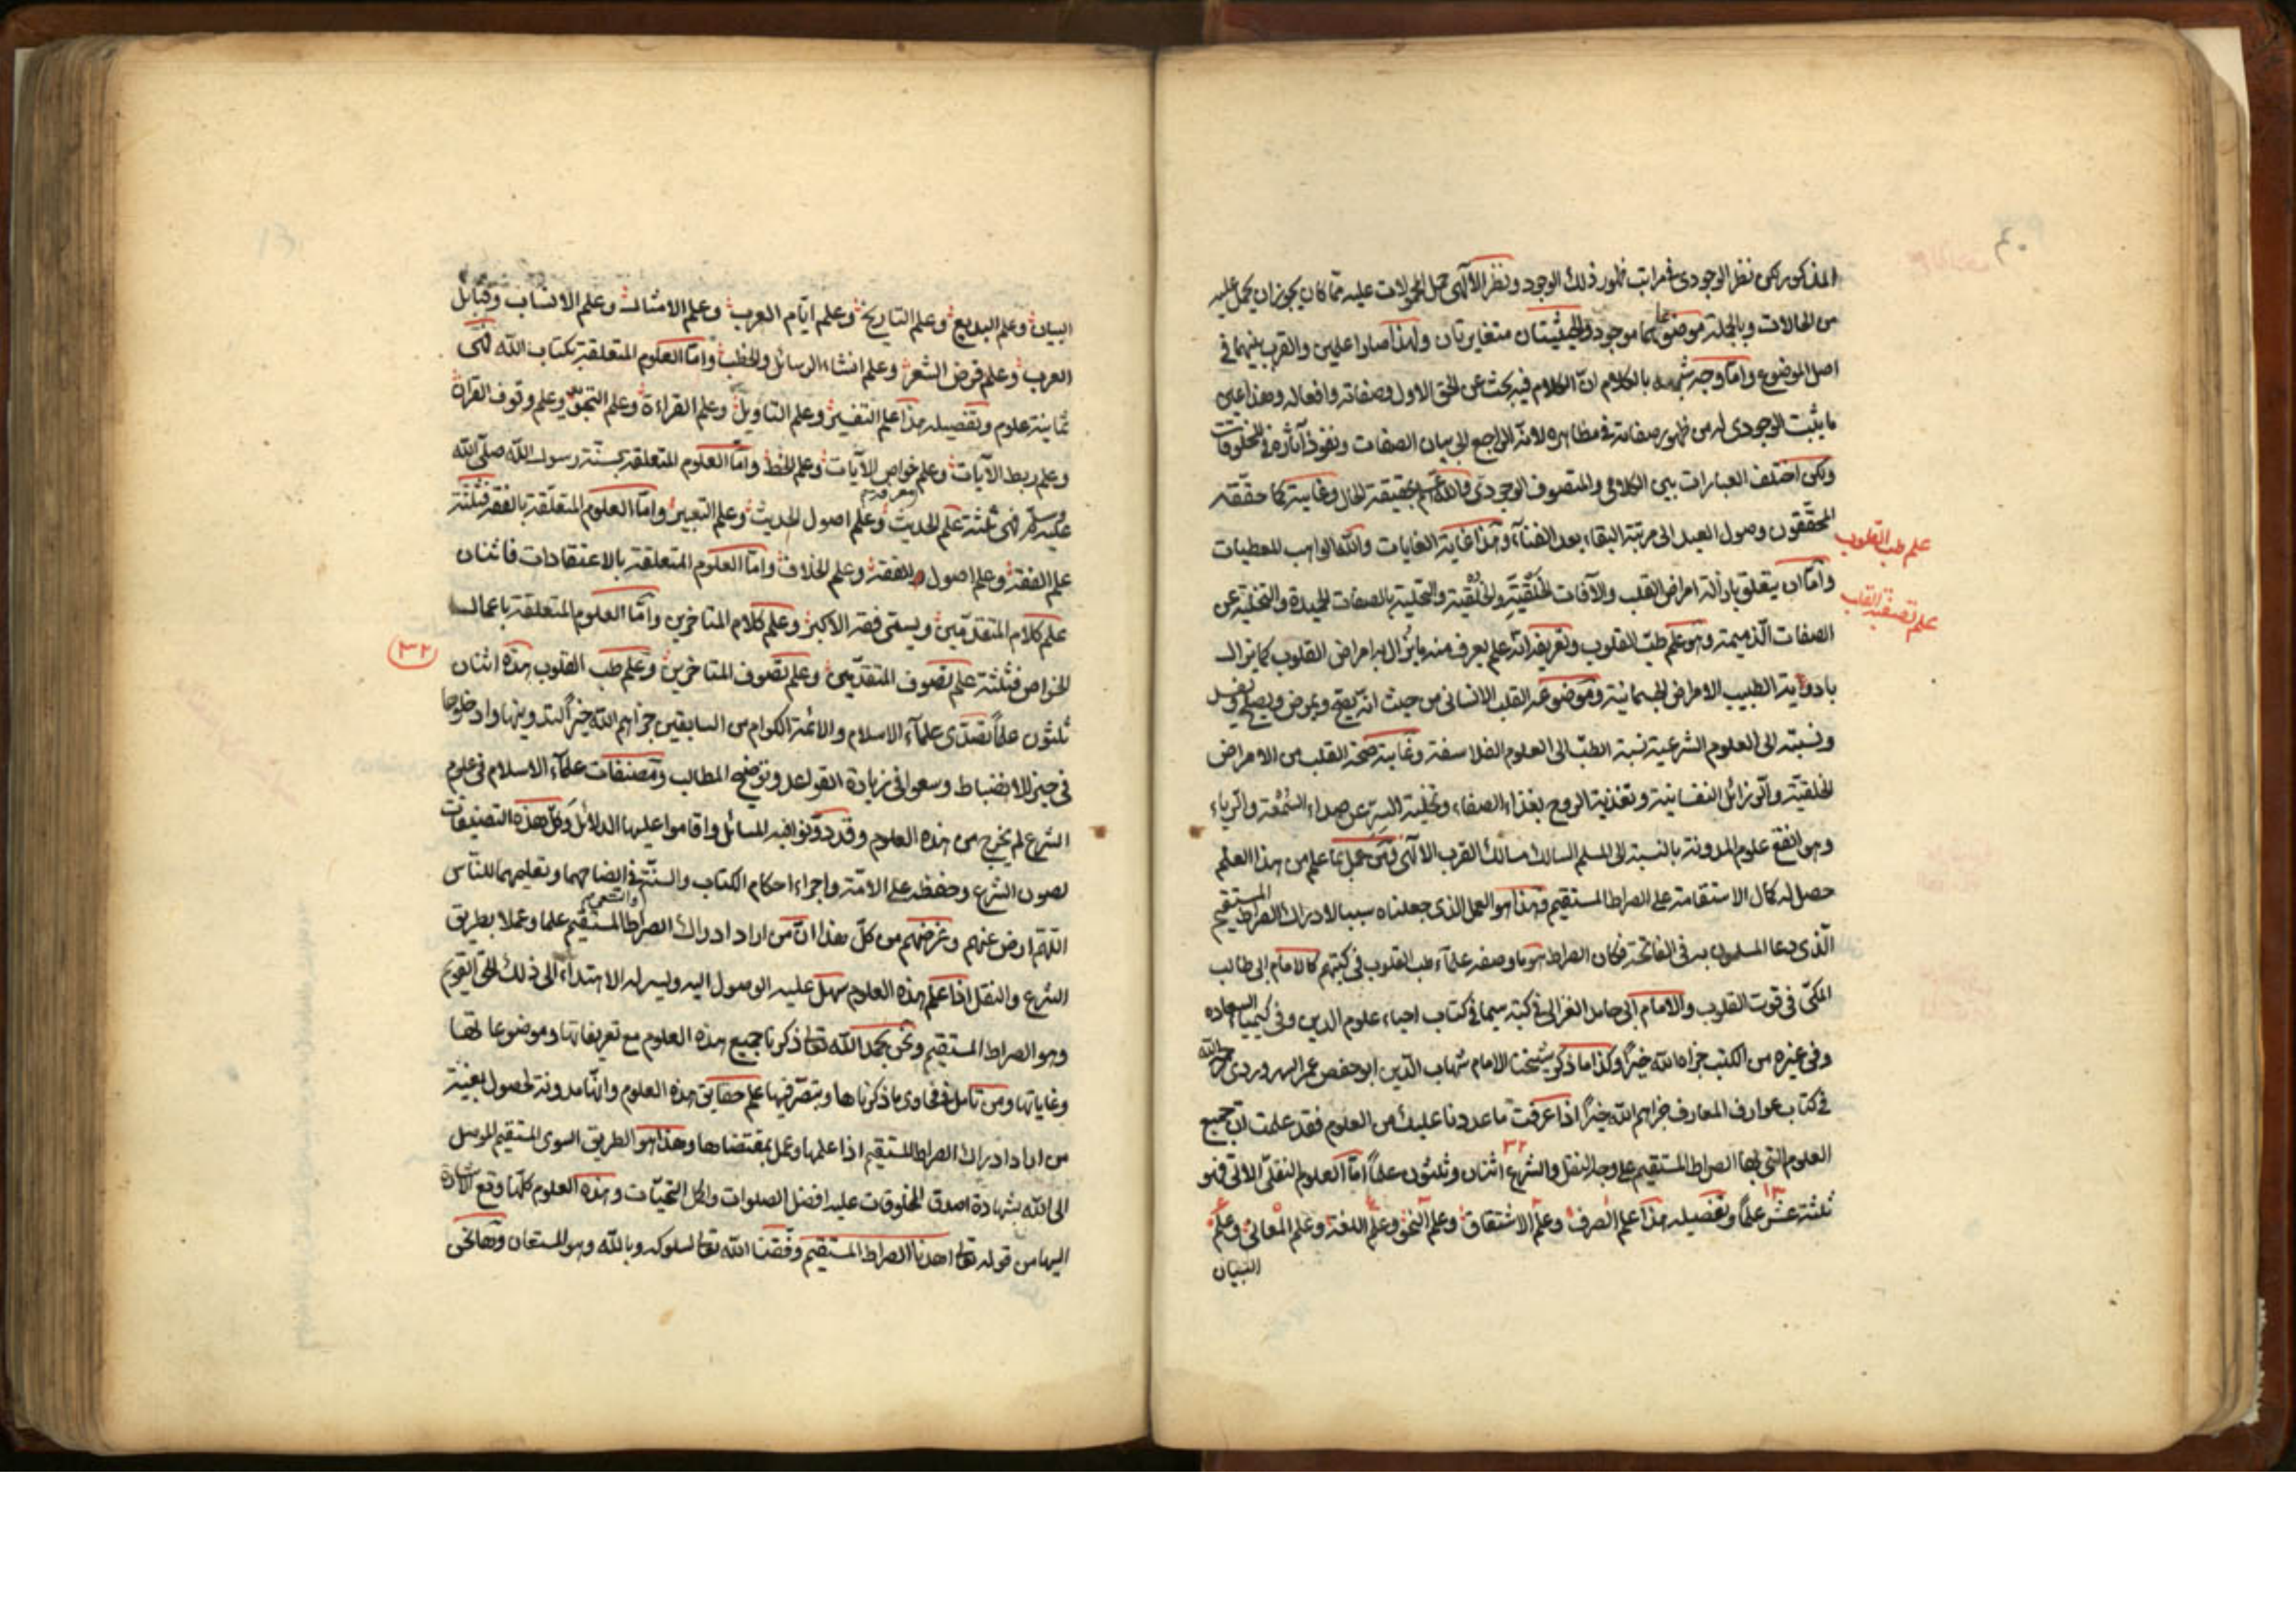 المذكور لكن نظر الوجودى فى مراتب ظهور ذلك الوجود ونظر الآلهى حمل المحمولات عليه مما كان يجوز ان يحمل عليه
من الحالات وبالجملة موضوعهما موجود والحيثيتان متغايرتان ولهذا صارا علمين والقرب بينهما فى
اصل الموضوع واما وجه شبهه بالكلام ان الكلام فيه بحث عن الحق الاول وصفاته وافعاله وهذا عين
ما يثبت الوجودى له من ظهور صفاته فى مظاهره لانه الراجع الى بيان الصفات ونفوذ آثاره فى المخلوقات
ولكن اختلف العبارات بين الكلامى والمتصوف الوجودى والله اعلم بحقيقة الحال وغايته كما حققه
المحققون وصول العبد الى مرتبة البقاء بعد الفناء وهذا غاية الغايات والله الواهب للعطيات
علم طب القلوب
واما ان يتعلق بازالة امراض القلب والآفات الخَلقيّة والخُلقية والتحلية بالصفات الحميدة والتخلية عن
علم تصفية القلب
الصفات الذميمة وهو علم طب القلوب وتعريفه انه علم يعرف منه ما يزال به امراض القلوب كما يزال
بادوية الطبيب الامراض الجسمانية وموضوعه القلب الانسانى من حيث انه يصح ويمرض ويصلح ويفسد
ونسبته الى العلوم الشرعية نسبة الطب الى العلوم الفلاسفة وغايته صحة القلب من الامراض
الخلقية والرزائل النفسانية وتغذية الروح بغذاء الصفاء وتخلية السر عن صداء السمعة والرياء
وهو انفع علوم المدونة بالنسبة الى المسلم السالك مسالك القرب الآلهى فمن عمل بما علم من هذا العلم
حصل له كمال الاستقامة على الصراط المستقيم وهذا هو العمل الذى جعلناه سببا لادراك الصراط المستقيم
الذى دعا المسلمون به فى الفاتحة فكان الصراط هو ما وصفه علماء طب القلوب فى كتبهم كالامام ابى طالب
المكى فى قوت القلوب والامام ابى حامد الغزالى فى كتبه سيما فى كتاب احياء علوم الدين وفى كيمياء السعاده
وفى غيره من الكتب جزاه الله خيرًا وكذا ما ذكر شيخنا الامام شهاب الدين ابو حفص عمر السهروردى رحمه الله
فى كتاب عوارف المعارف جزاهم الله خيرًا اذا عرفت ما عددنا عليك من العلوم فقد علمت ان جميع
العلوم التى بها الصراط المستقيم على وجه النقل والشرع اثنان وثلثون علمًا اما العلوم النقلى الآتى فهو
٣٢
ثلثة عشر علمًا وتفصيله هذا علم الصرف وعلم الاشتقاق وعلم النحو وعلم اللغة وعلم المعانى وعلم
١٣
البيان
البيان وعلم البديع وعلم التاريخ وعلم ايّام العرب وعلم الامثال وعلم الانساب وقبايل
العرب وعلم قرض الشعر وعلم انشاء الرسائل والخطب واما العلوم المتعلقة بكتاب الله فهى
ثمانية علوم وتفصيله هذا علم التفسير وعلم التاويل وعلم القراءة وعلم التجويد وعلم وقوف القرآن
وعلم ربط الآيات وعلم خواص الآيات وعلم الخط واما العلوم المتعلقة بسنة رسول الله صلى الله
عليه وسلم فهى ثلثة علم الحديث وعلم اصول الحديث وعلم التعبير واما العلوم المتعلقة بالفقه فثلثة
علم الفقه وعلم اصول الفقه وعلم الخلاف واما العلوم المتعلقة بالاعتقادات فاثنان
علم كلام المتقدمين ويسمى فقه الاكبر وعلم كلام المتاخرين واما العلوم المتعلقة باعمال
الخواص فثلثة علم تصوف المتقدمين وعلم تصوف المتاخرين وعلم طب القلوب هذه اثنان
٣٢
ثلثون علمًا تصدى علماء الاسلام والائمة الكرام من السابقين جزاهم الله خيرًا لتدوينها وادخلوها
فى حيز الانضباط وسعوا فى زيادة القواعد وتوضيح المطالب ومصنفات علماء الاسلام فى علوم
الشرع لم يخرج من هذه العلوم وقد دوّنوا فيه المسائل واقاموا عليها الدلائل وكل هذه التصنيفات
لصون الشرع وحفظه على الامة واجراء احكام الكتاب والسنة فى ايضاحهما وتعليمهما للناس
اللهم ارض عنهم وغرضهم من كل هذا ان من اراد ادراك الصراط المستقيم علما وعملا بطريق
الشرع والنقل اذا علم هذه العلوم سهل عليه الوصول اليه ويسر له الاهتداء الى ذلك الحق القويم
وهو الصراط المستقيم ونحن بحمد الله تعالى ذكرنا جميع هذه العلوم مع تعريفاتها وموضوعاتها
وغاياتها ومن تامل فى فحاوى ما ذكرناها وتبصر فيها علم حقايق هذه العلوم وانها مدونة لحصول بغية
من اراد ادراك الصراط المستقيم اذا علمها وعمل بمقتضاها وهذا هو الطريق السوى المستقيم الموصل
الى الله بشهادة اصدق المخلوقات عليه افضل الصلوات واكمل التحيّات وهذه العلوم كلها وقع الاشارة
اليها من قوله تعالى اهدنا الصراط المستقيم وفقنا الله تعالى لسلوكه وبالله وهو المستعان وها نحن